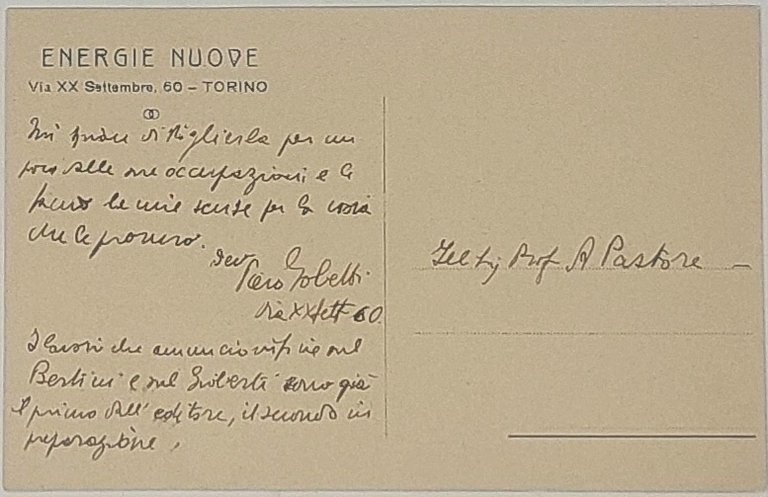 ENERGIE NUOVE
Via XX Settembre, 60 – TORINO
Mi spiace di toglierla per un
poco dalle sue occupazioni e le
faccio le mie scuse per la noia
che le procuro.
dev
Piero Gobetti
Via XX Sett 60.
I lavori che annunciavi fine sul
Bertini e sul Gioberti sono già
il primo dall'editore, il secondo in
preparazione.
Prof A Pastore –